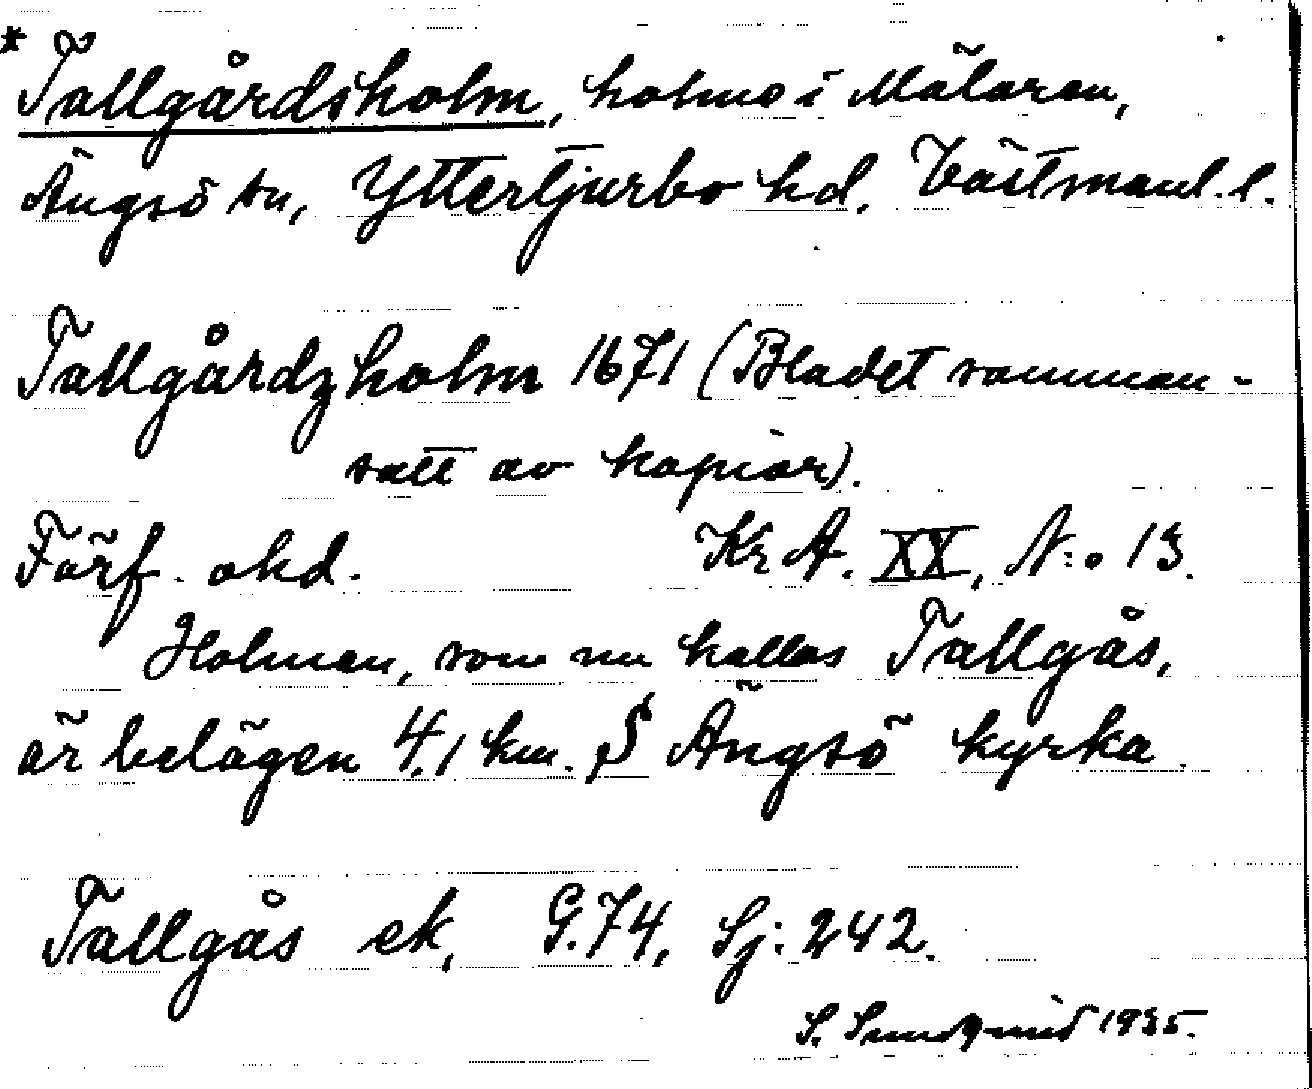 * Tallgårdsholm, holme i Mälaren,
Ängsö sn, Yttertjurbo hd, Västmanl. l.
Tallgårdzholm 1671 (Bladet samman-
satt av kopior).
Förf. okd. Kr A. XX, N:o 13.
Holmen, som nu kallas Tallgås,
är belägen 4,1 km. S Ängsö kyrka.
Tallgås ek, G.74, Sj: 242.
S. Sundqvist 1935.